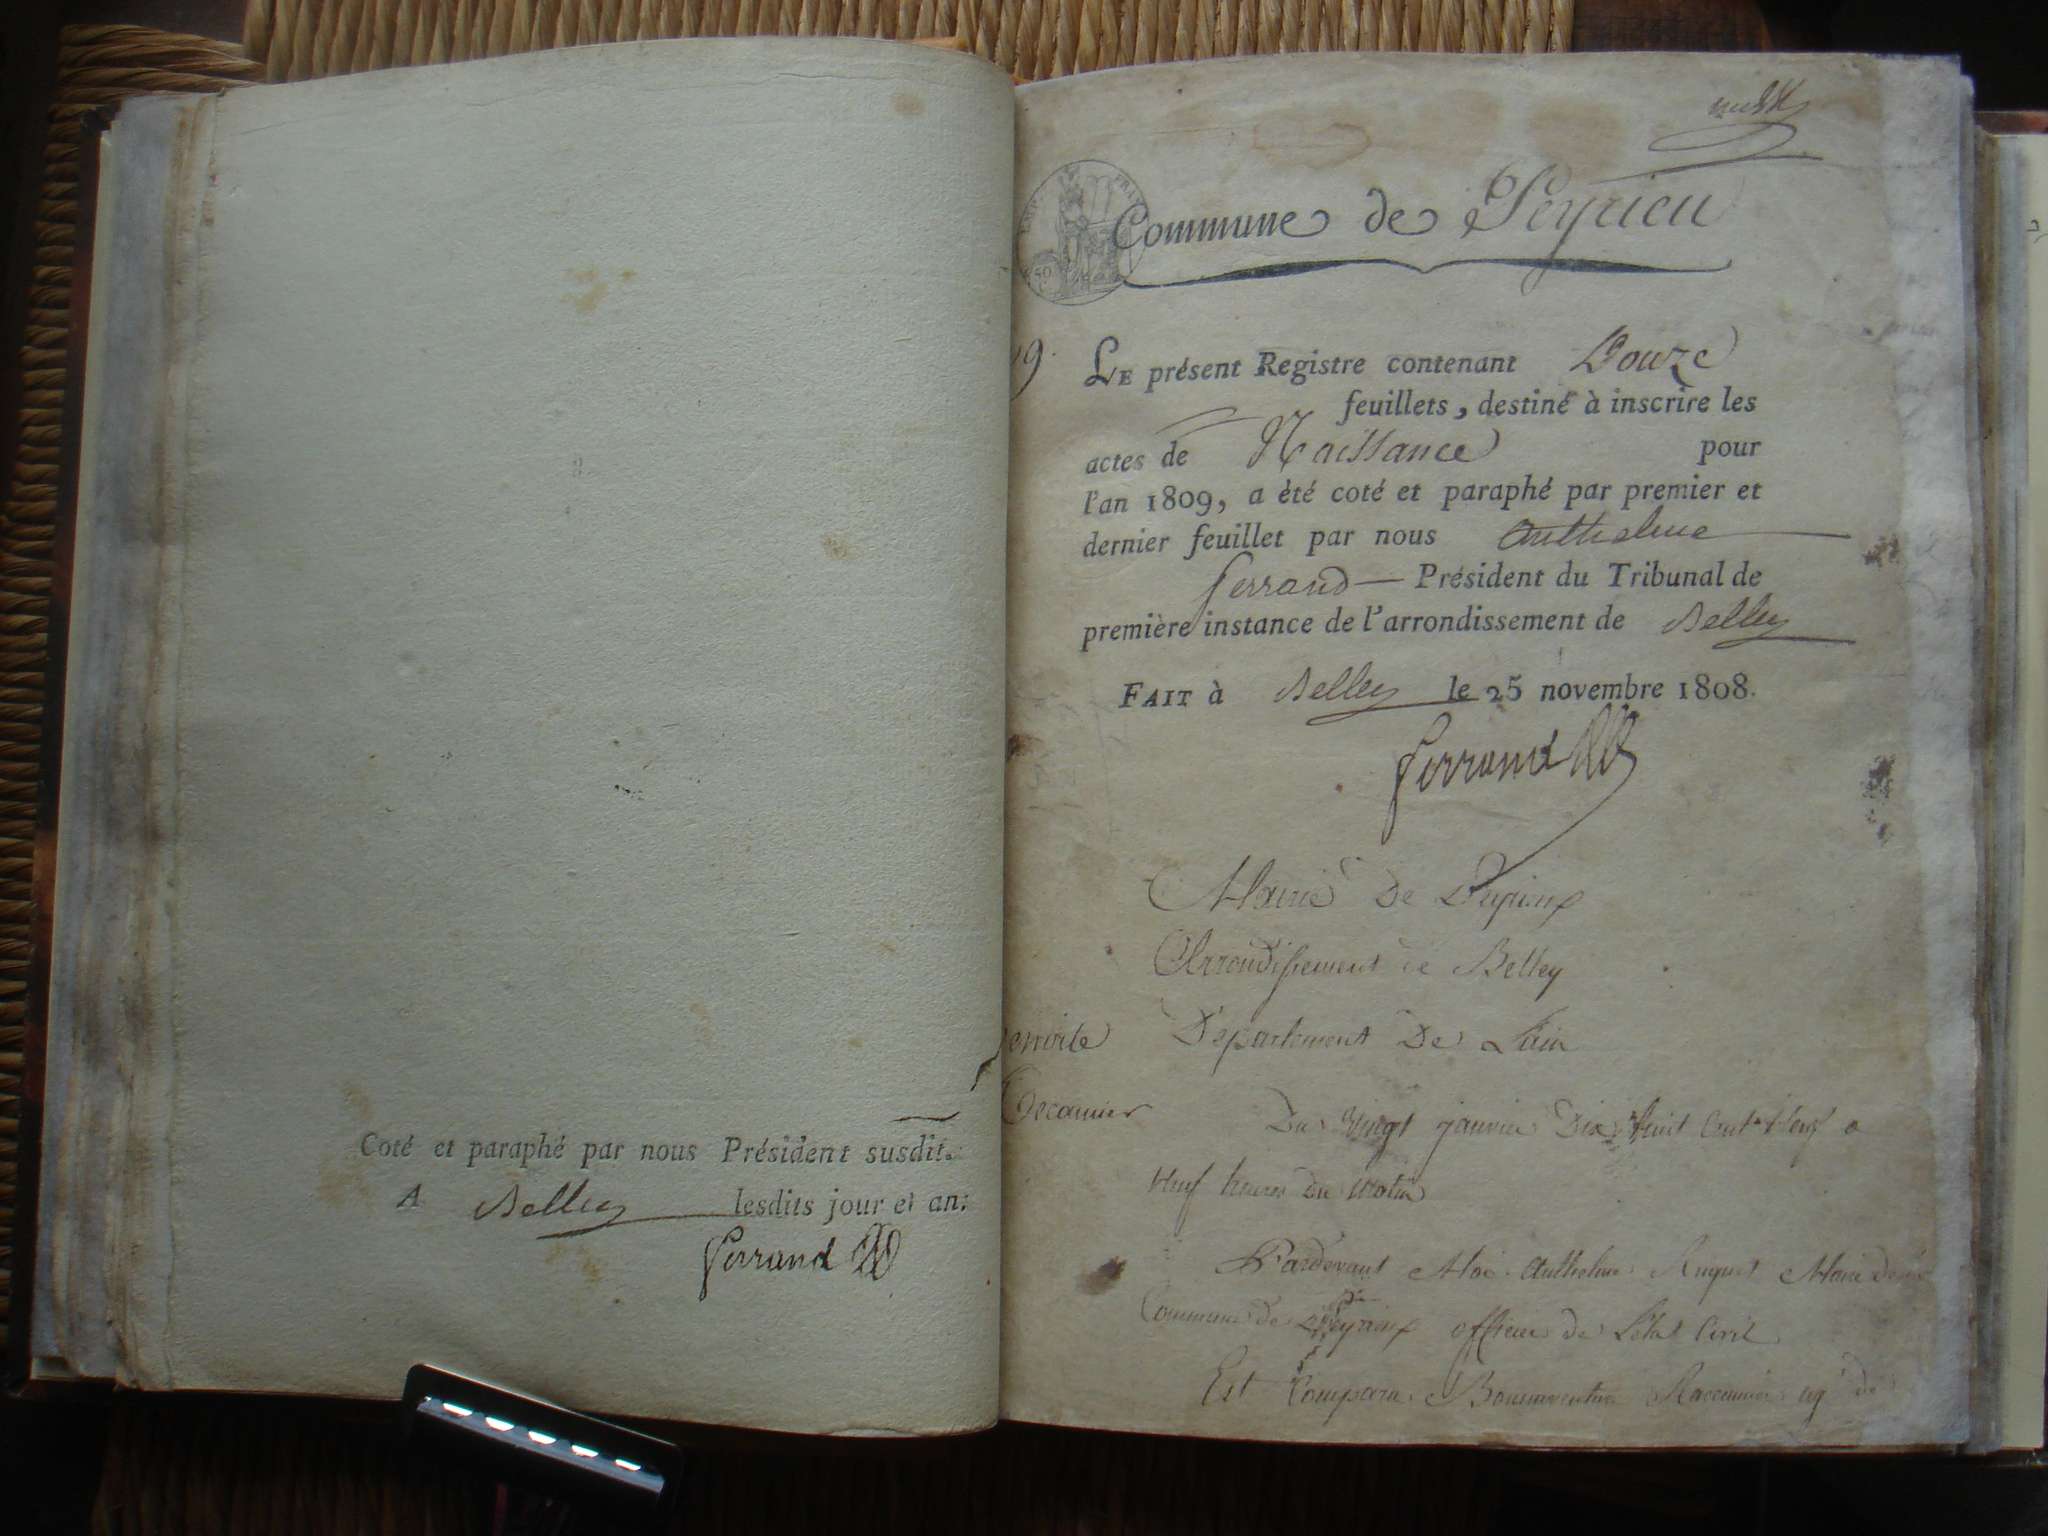 Coté et paraphé par nous Président susdit.
A Belley lesdits jour et an.
Ferrand
Commune de Peyrieu
LE présent Registre contenant Douze
feuillets, destiné à inscrire les
actes de Naissance pour
l'an 1809, a été coté et paraphé par premier et
dernier feuillet par nous Anthelme
Ferrand Président du Tribunal de
première instance de l'arrondissement de Belley
FAIT à Belley le 25 novembre 1808.
Ferrand
Mairie De Peyrieux
Arrondissement de Belley
Departement De Lain
Du vingt janvier Dix huit cent Neuf a
Neuf heures du matin
Pardevant Moi Anthelme Maire de
Commune de Peyrieux officier de Léta Civil
Est Comparu Bonnaventure